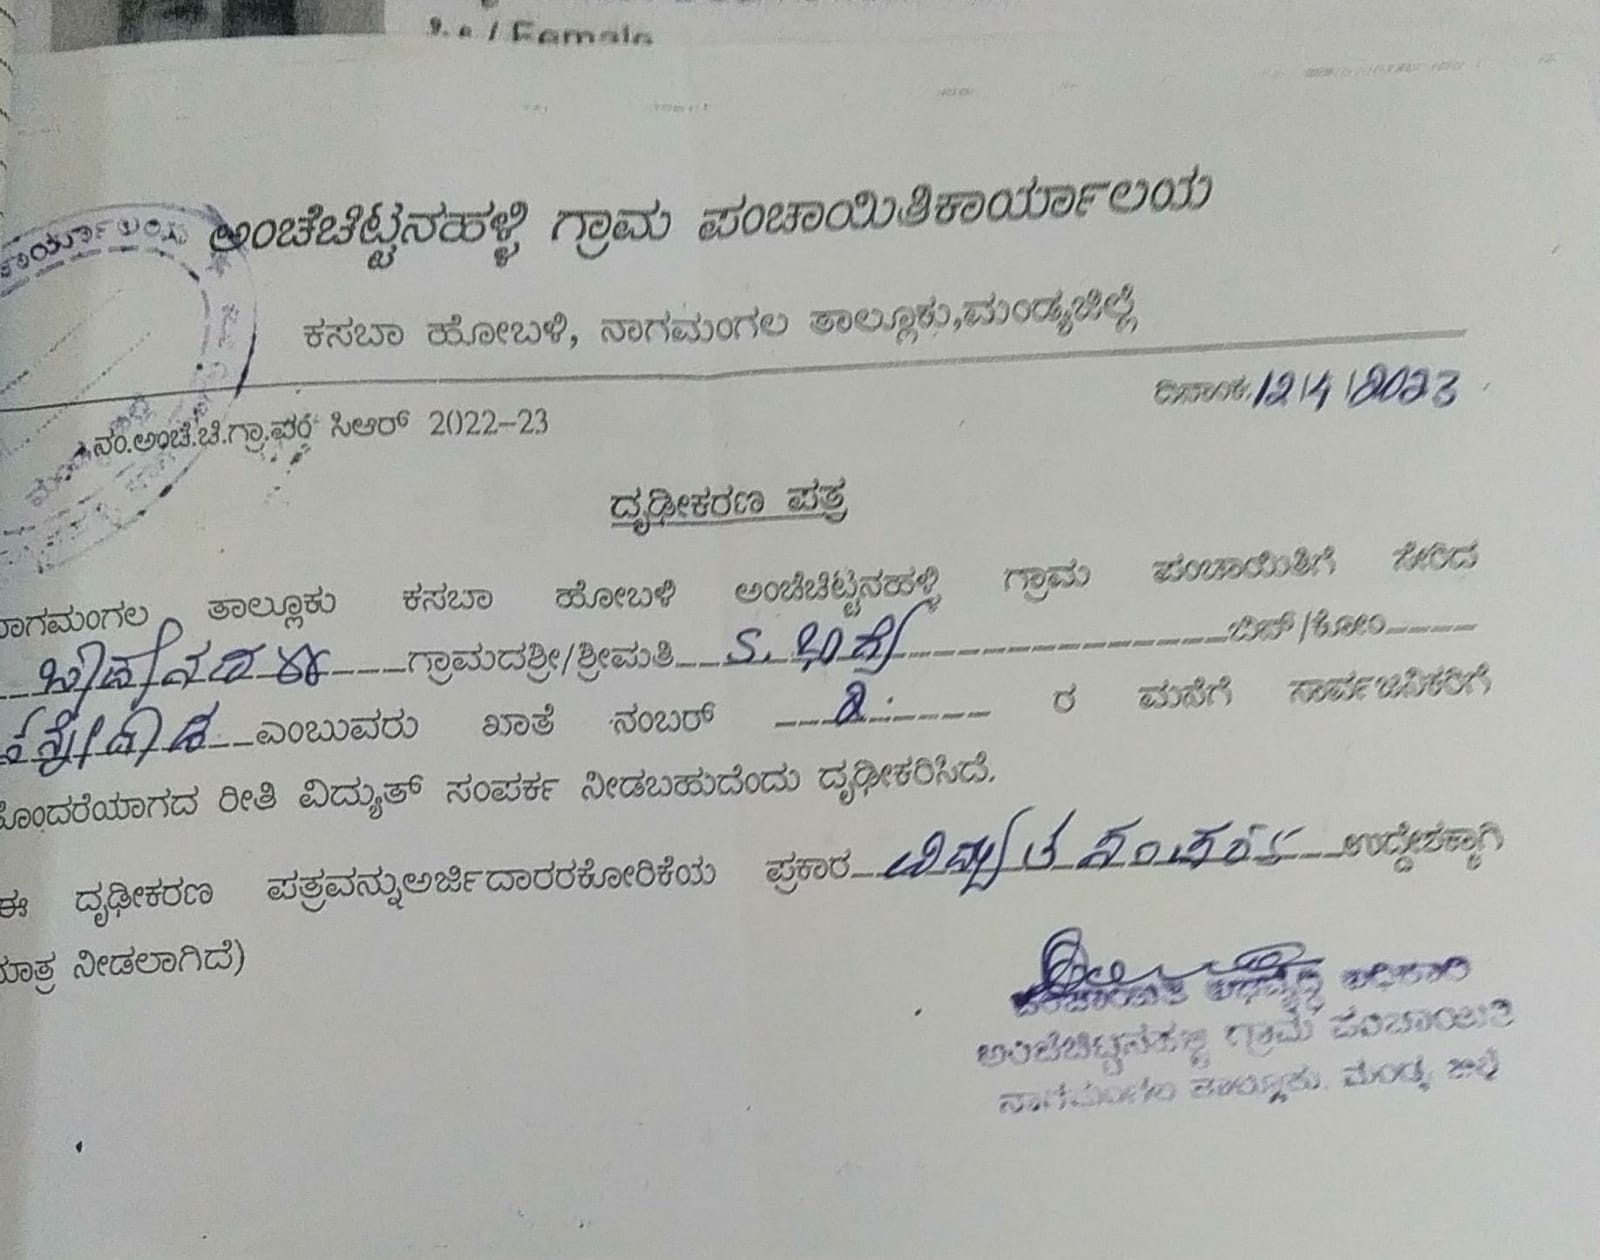 / Female
ಅಂಚೆಚಿಟ್ಟನಹಳ್ಳಿ ಗ್ರಾಮ ಪಂಚಾಯಿತಿಕಾರ್ಯಾಲಯ
ಕಸಬಾ ಹೋಬಳಿ, ನಾಗಮಂಗಲ ತಾಲ್ಲೂಕು,ಮಂಡ್ಯಜಿಲ್ಲೆ
ದಿನಾಂಕ:12/4/2023
ನಂ.ಅಂಚೆ.ಚಿ.ಗ್ರಾ.ಪಂ ಸಿಆರ್ 2022-23
ದೃಢೀಕರಣ ಪತ್ರ
ನಾಗಮಂಗಲ ತಾಲ್ಲೂಕು ಕಸಬಾ ಹೋಬಳಿ ಅಂಚೆಚಿಟ್ಟನಹಳ್ಳಿ ಗ್ರಾಮ ಪಂಚಾಯಿತಿಗೆ ಸೇರಿದ
ಗ್ರಾಮದಶ್ರೀ/ಶ್ರೀಮತಿ ಬಿನ್/ಕೋಂ
ಎಂಬುವರು ಖಾತೆ ನಂಬರ್ ರ ಮನೆಗೆ ಸಾರ್ವಜನಿಕರಿಗೆ
ತೊಂದರೆಯಾಗದ ರೀತಿ ವಿದ್ಯುತ್ ಸಂಪರ್ಕ ನೀಡಬಹುದೆಂದು ದೃಢೀಕರಿಸಿದೆ.
ಈ ದೃಢೀಕರಣ ಪತ್ರವನ್ನುಅರ್ಜಿದಾರರಕೋರಿಕೆಯ ಪ್ರಕಾರ ವಿದ್ಯುತ ಸಂಪರ್ಕ ಉದ್ದೇಶಕ್ಕಾಗಿ
ಮಾತ್ರ ನೀಡಲಾಗಿದೆ)
ಪಂಚಾಯಿತಿ ಅಭಿವೃದ್ಧಿ ಅಧಿಕಾರಿ
ಅಂಚೆಚಿಟ್ಟನಹಳ್ಳಿ ಗ್ರಾಮ ಪಂಚಾಯಿತಿ
ನಾಗಮಂಗಲ ತಾಲ್ಲೂಕು, ಮಂಡ್ಯ ಜಿಲ್ಲೆ